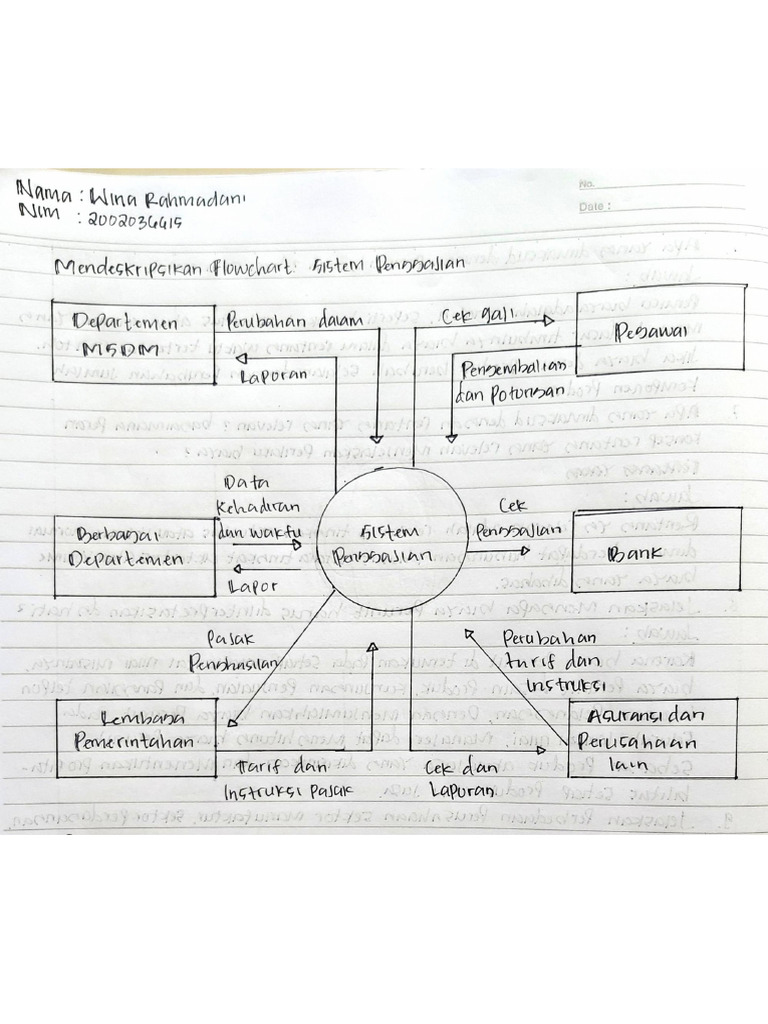 Nama : Wina Rahmadani
Nim : 2002036415
No.
Date :
Mendeskripsikan Flowchart: Sistem Penggajian
Departemen
MSDM
Perubahan dalam
Laporan
Cek gaji
Pengembalian
dan Potongan
Pegawai
Data
Kehadiran
dan waktu
Berbagai
Departemen
Lapor
Sistem
Penggajian
Cek
Penggajian
Bank
Pajak
Penghasilan
Perubahan
turif dan
instruksi
Lembaga
Pemerintahan
Tarif dan
Instruksi Pajak
Cek dan
Laporan
Asuransi dan
Perusahaan
lain